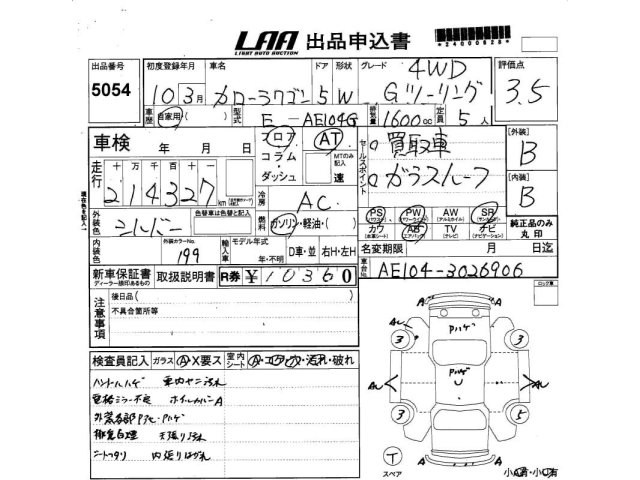 LAA 出品申込書
LIGHT AUTO AUCTION
*24000828*
出品番号 初度登録年月 車名 ドア 形状 グレード 評価点
5054 10 3月 カローラワゴン 5 W 4WD Gツーリング 3.5
車歴 自家用・( ) 型式 E-AE104G 排気量 1600cc 定員 5人
車検 年 月 日
フロア コラム・ダッシュ AT MTのみ記入 速
セールスポイント 買取車
ガラスルーフ
[外装] B
[内装] B
走行 十 万 千 百 十
214327 km
冷房 AC
現在色を記入
外装色 シルバー 色替車は色替と記入
燃料 ガソリン・軽油・( )
PS PW AW SR
(パワステ) (パワーウインド) (アルミホイル) (サンルーフ)
カワ AB TV ナビ
(本革シート) (エアバック) (テレビ) (ナビゲーション)
純正品のみ丸印
内装色 外装カラーNo. 199 輸入車 モデル年式 年・不明 D車・並 右H・左H
名変期限 月 日迄
新車保証書 取扱説明書 R券 ¥10360
ディーラー様印あるもの
車台No. AE104-3026906
注意事項 後日品( )
不具合箇所等
ロック車
検査員記入 ガラス A X要ス 室内シート A・コゲ・穴・汚れ・破れ
ハンドルハゲ 車内ヤニ汚れ
電格ミラー不良 ホイルカバーA
外装各部Pアセ・Pハゲ
天張り汚れ
シートヘタリ 内張りはがれ
Pハゲ
Pハゲ
U
3 3
3 5
A A
A A
T
スペア